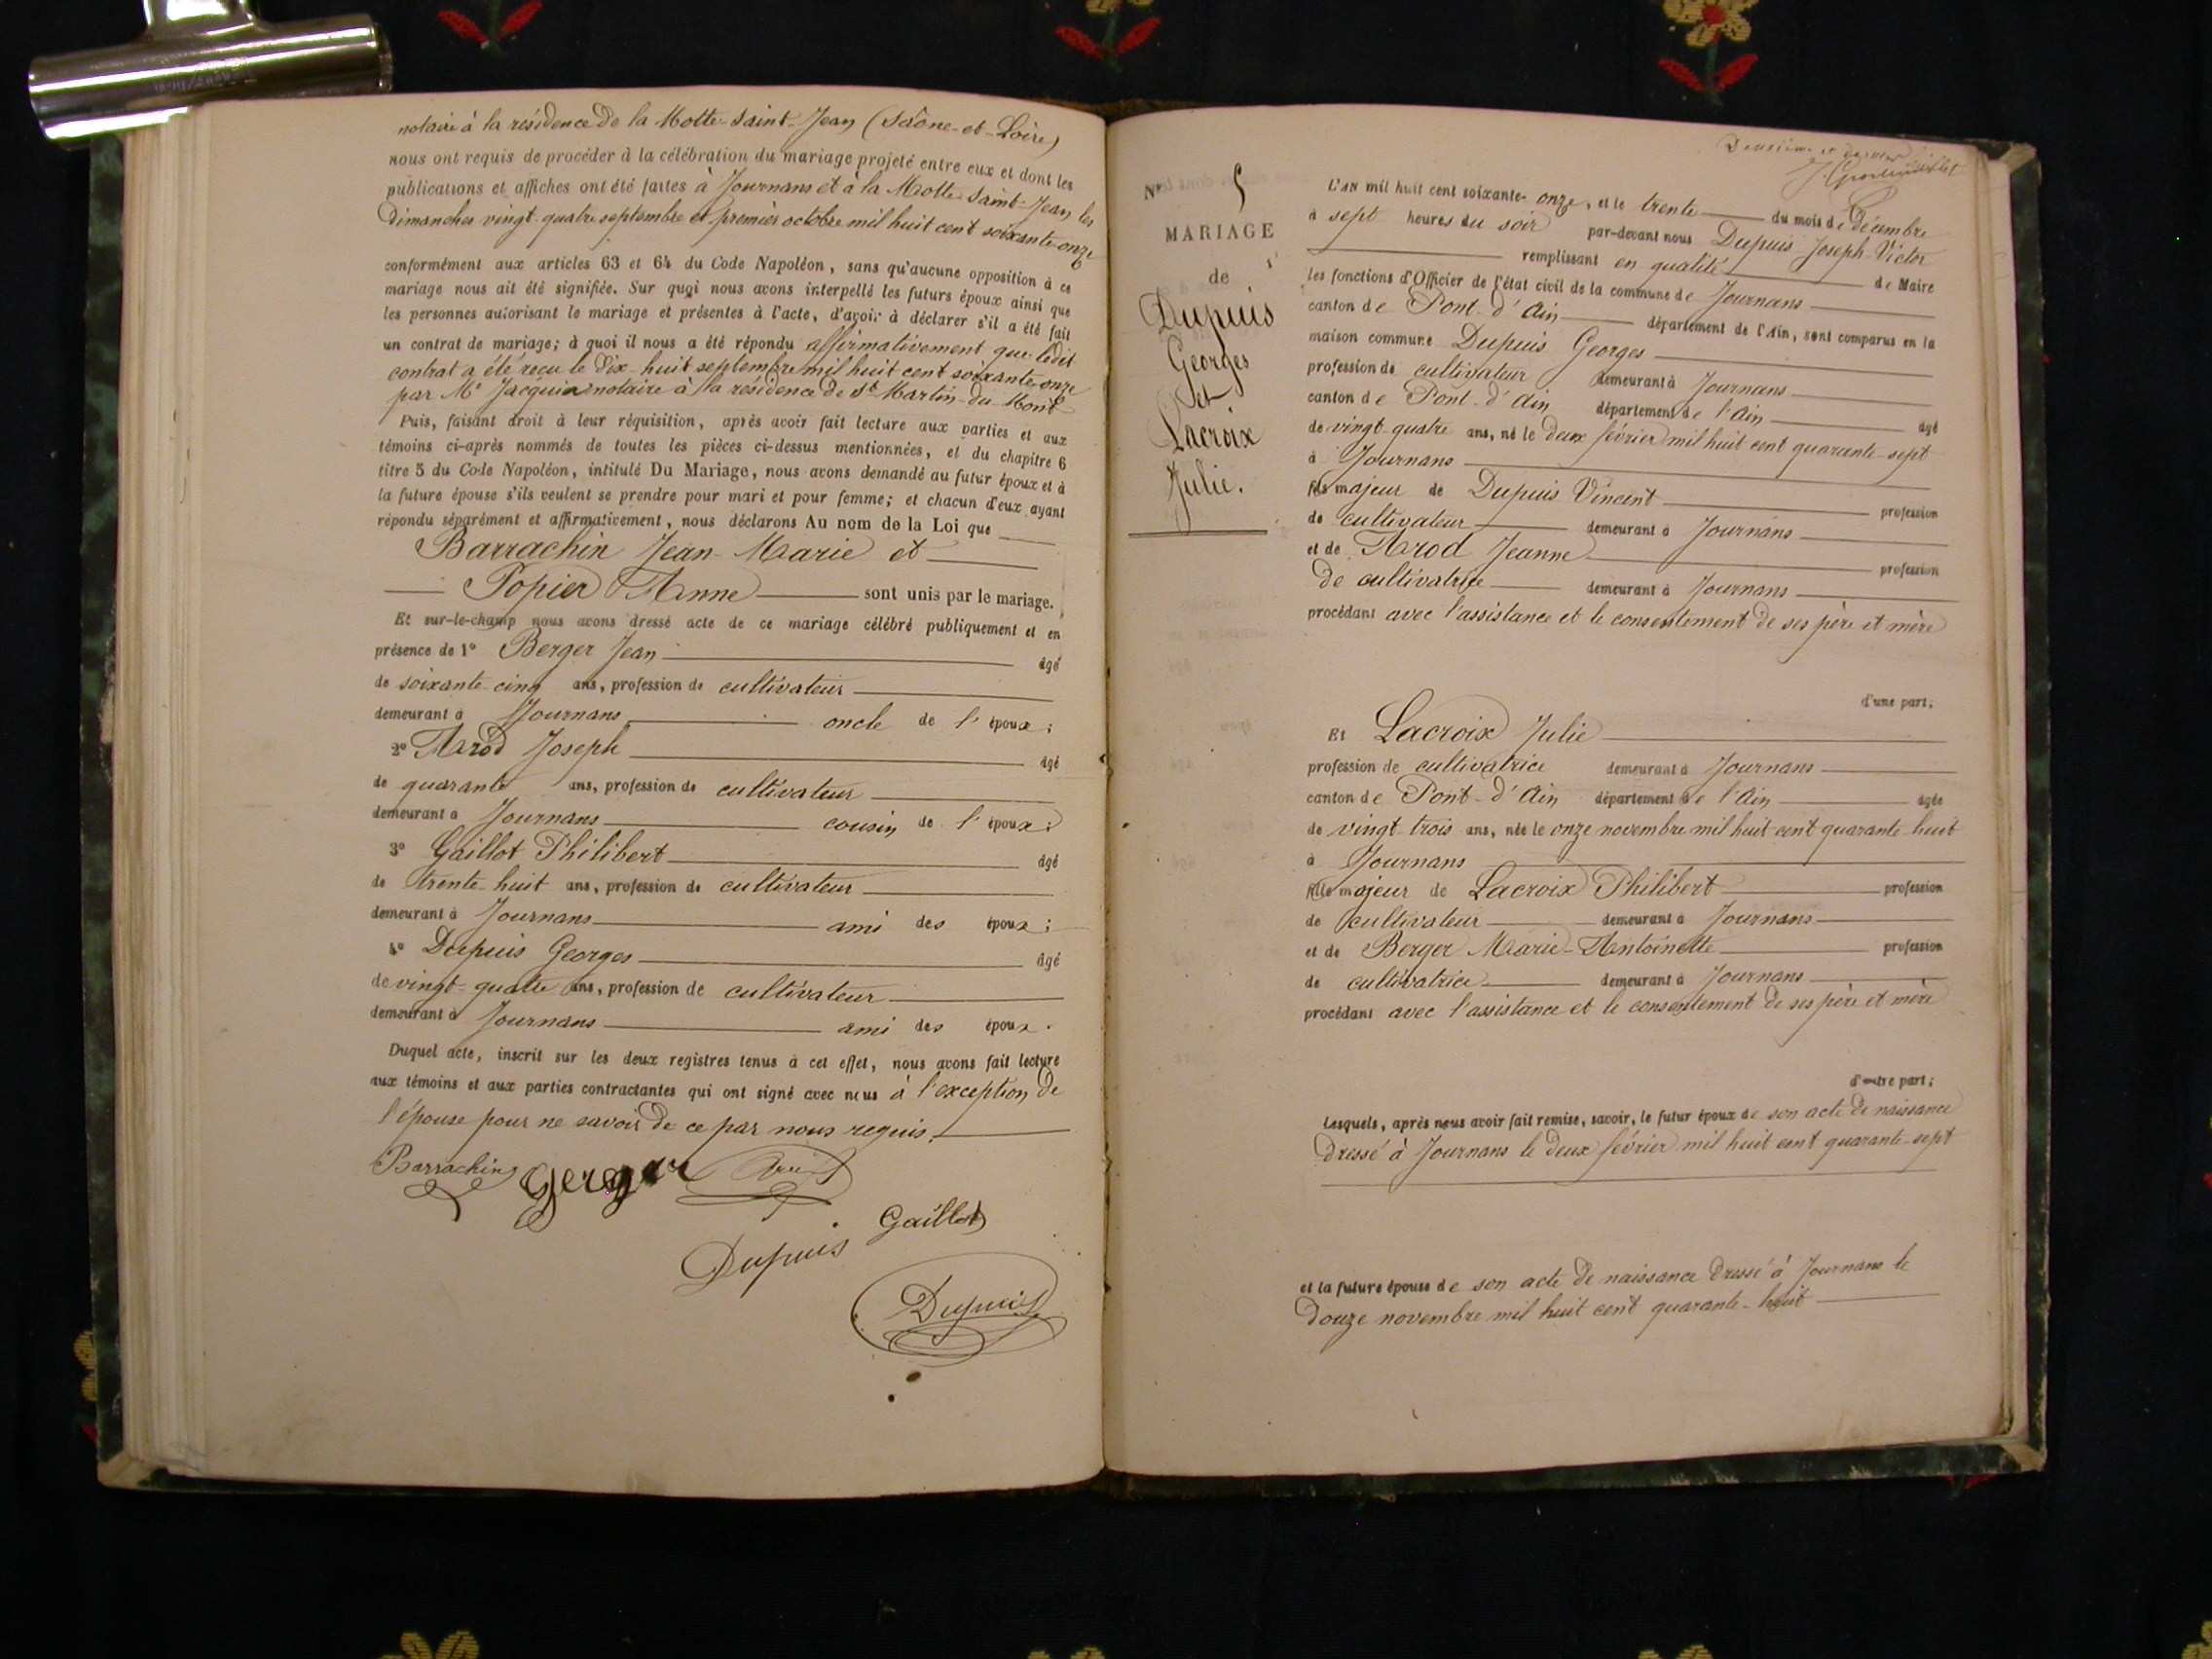 notaire à la résidence de la Motte-Saint-Jean (Saône-et-Loire)
nous ont requis de procéder à la célébration du mariage projeté entre eux et dont les
publications et affiches ont été faites à Journans et à la Motte-Saint-Jean les
dimanches vingt-quatre septembre et premier octobre mil huit cent soixante-onze
conformément aux articles 63 et 64 du Code Napoléon, sans qu'aucune opposition à ce
mariage nous ait été signifiée. Sur quoi nous avons interpellé les futurs époux ainsi que
les personnes autorisant le mariage et présentes à l'acte, d'avoir à déclarer s'il a été fait
un contrat de mariage; à quoi il nous a été répondu affirmativement que ledit
contrat a été reçu le dix-huit septembre mil huit cent soixante-onze
par Me Jacquin notaire à la résidence de St Martin-du-Mont
Puis, faisant droit à leur réquisition, après avoir fait lecture aux parties et aux
témoins ci-après nommés de toutes les pièces ci-dessus mentionnées, et du chapitre 6
titre 5 du Code Napoléon, intitulé Du Mariage, nous avons demandé au futur époux et à
la future épouse s'ils veulent se prendre pour mari et pour femme; et chacun d'eux ayant
répondu séparément et affirmativement, nous déclarons Au nom de la Loi que
Barrachin Jean-Marie et
Popier Anne sont unis par le mariage.
Et sur-le-champ nous avons dressé acte de ce mariage célébré publiquement et en
présence de 1° Berger Jean âgé
de soixante-cinq ans, profession de cultivateur
demeurant à Journans oncle de l'époux;
2° Arod Joseph âgé
de quarante ans, profession de cultivateur
demeurant à Journans cousin de l'époux;
3° Gaillot Philibert âgé
de trente-huit ans, profession de cultivateur
demeurant à Journans ami des époux;
4° Dupuis Georges âgé
de vingt-quatre ans, profession de cultivateur
demeurant à Journans ami des époux.
Duquel acte, inscrit sur les deux registres tenus à cet effet, nous avons fait lecture
aux témoins et aux parties contractantes qui ont signé avec nous à l'exception de
l'épouse pour ne savoir de ce par nous requis.
Barrachin
Gaillot
Dupuis
Dupuis
N° 5
MARIAGE
de
Dupuis
Georges
et
Lacroix
Julie.
L'AN mil huit cent soixante-onze, et le trente du mois de Décembre
à sept heures du soir par-devant nous Dupuis Joseph-Victor
remplissant en qualité de Maire
les fonctions d'Officier de l'état civil de la commune de Journans
canton de Pont-d'Ain département de l'Ain, sont comparus en la
maison commune Dupuis Georges
profession de cultivateur demeurant à Journans
canton de Pont-d'Ain département de l'Ain âgé
de vingt-quatre ans, né le deux février mil huit cent quarante-sept
à Journans
fils majeur de Dupuis Vincent profession
de cultivateur demeurant à Journans
et de Arod Jeanne profession
de cultivatrice demeurant à Journans
procédant avec l'assistance et le consentement de ses père et mère
d'une part;
Et Lacroix Julie
profession de cultivatrice demeurant à Journans
canton de Pont-d'Ain département de l'Ain âgée
de vingt-trois ans, née le onze novembre mil huit cent quarante-huit
à Journans
fille majeur de Lacroix Philibert profession
de cultivateur demeurant à Journans
et de Berger Marie-Antoinette profession
de cultivatrice demeurant à Journans
procédant avec l'assistance et le consentement de ses père et mère
d'autre part;
Lesquels, après nous avoir fait remise, savoir, le futur époux de son acte de naissance
dressé à Journans le deux février mil huit cent quarante-sept
et la future épouse de son acte de naissance dressé à Journans le
douze novembre mil huit cent quarante-huit